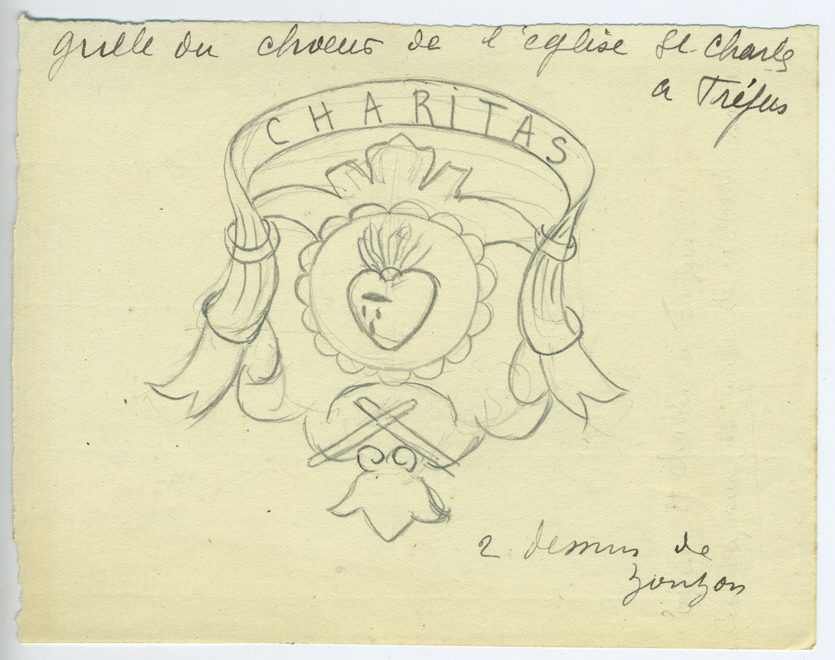 grille du choeur de l'église St Charles
a Tréjus
CHARiTAS
2 dessins de
Zonzon